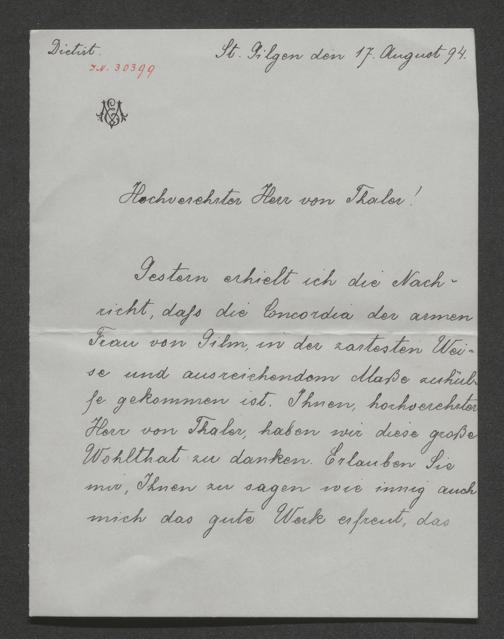 Dictirt.
St. Gilgen den 17. August 94.
I.N. 30399
Hochverehrter Herr von Thaler!
Gestern erhielt ich die Nach-
richt, daſs die Concordia der armen
Frau von Gilm, in der zartesten Wei-
se und ausreichendem Maße zuhül-
fe gekommen ist. Ihnen, hochverehrter
Herr von Thaler, haben wir diese große
Wohlthat zu danken. Erlauben Sie
mir, Ihnen zu sagen wie innig auch
mich das gute Werk erfreut, das